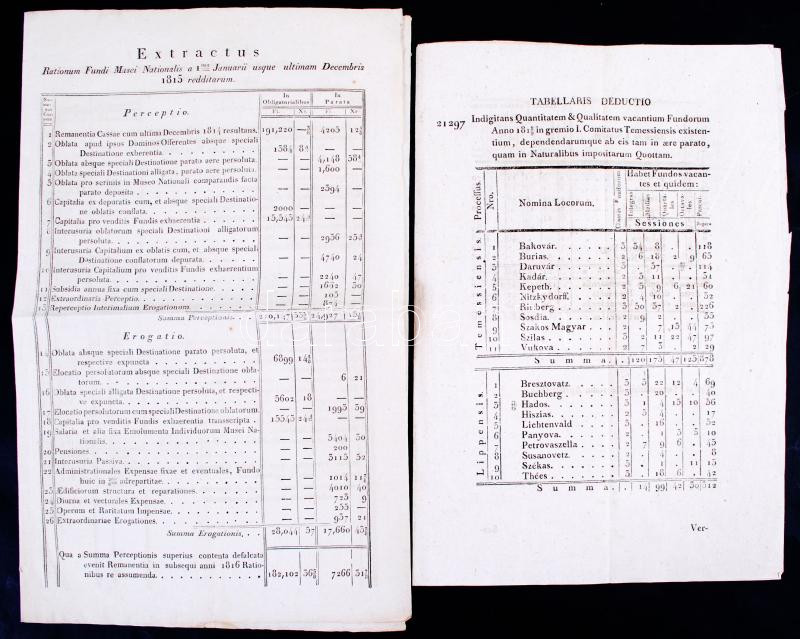 Extractus
Rationum Fundi Musei Nationalis a 1ma Januarii usque ultimam Decembris
1815 redditarum.
Perceptio.
In Obligatorialibus
In Parata
Fl. Xr. Fl. Xr.
1 Remanentia Cassae cum ultima Decembris 1814 resultans. 191,220 4205
2 Oblata apud ipsos Dominos Offerentes absque speciali
Destinatione exberentia 1584
3 Oblata absque speciali Destinatione parato aere persoluta. — — 4,148
4 Oblata speciali Destinationi alligata, parato aere persoluta. — — 1,600 —
5 Oblata pro scriniis in Museo Nationali comparandis facta
parato deposita — — 2594 —
6 Capitalia ex deparatis cum, et absque speciali Destinatio-
ne oblatis conflata. 2000 — — —
7 Capitalia pro venditis Fundis exhaerentia 15,545
8 Interusuria oblatorum specialis Destinationi alligatorum
persoluta. — — 2956
9 Interusuria Capitalium ex oblatis cum, et absque speciali
Destinatione conflatorum depurata. — — 4740 24
10 Interusuria Capitalium pro venditis Fundis exhaerentium
persoluta. — — 2240 47
11 Subsidia annua fixa cum speciali Destinatione. — — 1662 30
12 Extraordinaria Perceptio. — — 105 —
13 Reperceptio Interimalium Erogationum. — — 874 —
Summa Perceptionis. 210,147 24,927
Erogatio.
14 Oblata absque speciali Destinatione parato persoluta, et
respective expuncta 6899
15 Elocatio persolutorum absque speciali Destinatione obla-
torum. — — 6 21
16 Oblata speciali alligata Destinatione persoluta, et respecti-
ve expuncta. 5602 18
17 Elocatio persolutorum cum speciali Destinatione oblatorum. — — 1995 59
18 Capitalia pro venditis Fundis exhaerentia transscripta 15545
19 Salaria et alia fixa Emolumenta Individuorum Musei Na-
tionalis. — — 5404 30
20 Pensiones — — 200 —
21 Interusuria Passiva. — — 5115 52
22 Administrationales Expensae fixae et eventuales, Fundo
huic in adrepartitae. — — 1014
23 Aedificiorum structura et reparationes. — — 4010 40
24 Diurna et vecturales Expensae. — — 725 9
25 Operum et Raritatum Impensae. — — 255 —
26 Extraordinariae Erogationes. — — 957 21
Summa Erogationis, 28,044 57 17,660
Qua a Summa Perceptionis superius contenta defalcata
evenit Remanentia in subsequi anni 1816 Ratio-
nibus re assumenda. 182,102 7266
TABELLARIS DEDUCTIO
21297 Indigitans Quantitatem & Qualitatem vacantium Fundorum
in gremio I. Comitatus Temessiensis existen-
tium, dependendarumque ab eis tam in ære parato,
quam in Naturalibus impositarum Quottam.
Processus.
Nro.
Nomina Locorum.
Habet Fundos vacan-
tes et quidem:
Sessiones
Temessiensis.
1 Bakovár. 3 54 8 . . 118
2 Burias. 2 6 18 2 9 65
3 Daruvár. 3 . 57 . . 114
4 Kadár. 2 5 11 . . 31
5 Kepeth. 2 5 9 6 21 60
6 Nitzkydorff. 2 4 10 . . 32
7 Rittberg 2 50 57 2 . 226
8 Sosdia. 2 9 2 . . 35
9 Szakos Magyar 2 . 7 15 44 75
10 Szilas 2 2 11 22 47 97
11 Vukova 2 . 5 . 2 29
Summa. . 120 175 47 123 878
Lippensis.
1 Bresztovatz. 3 5 22 12 4 69
2 Buchberg 3 . 20 . . 40
3 Hados. 3 1 4 15 10 56
4 Hiszias. 2 5 4 . . 17
5 Lichtenvald 3 . 16 . . 52
6 Panyova. 2 . . 5 5 10
7 Petrovaszella 2 7 9 6 . 45
8 Susanovetz. 2 . 4 . . 8
9 Székas. 3 . 1 . 11 13
10 Thées. 2 . 18 6 . 42
Summa. . 14 99 42 30 312
Ver-
darabanth